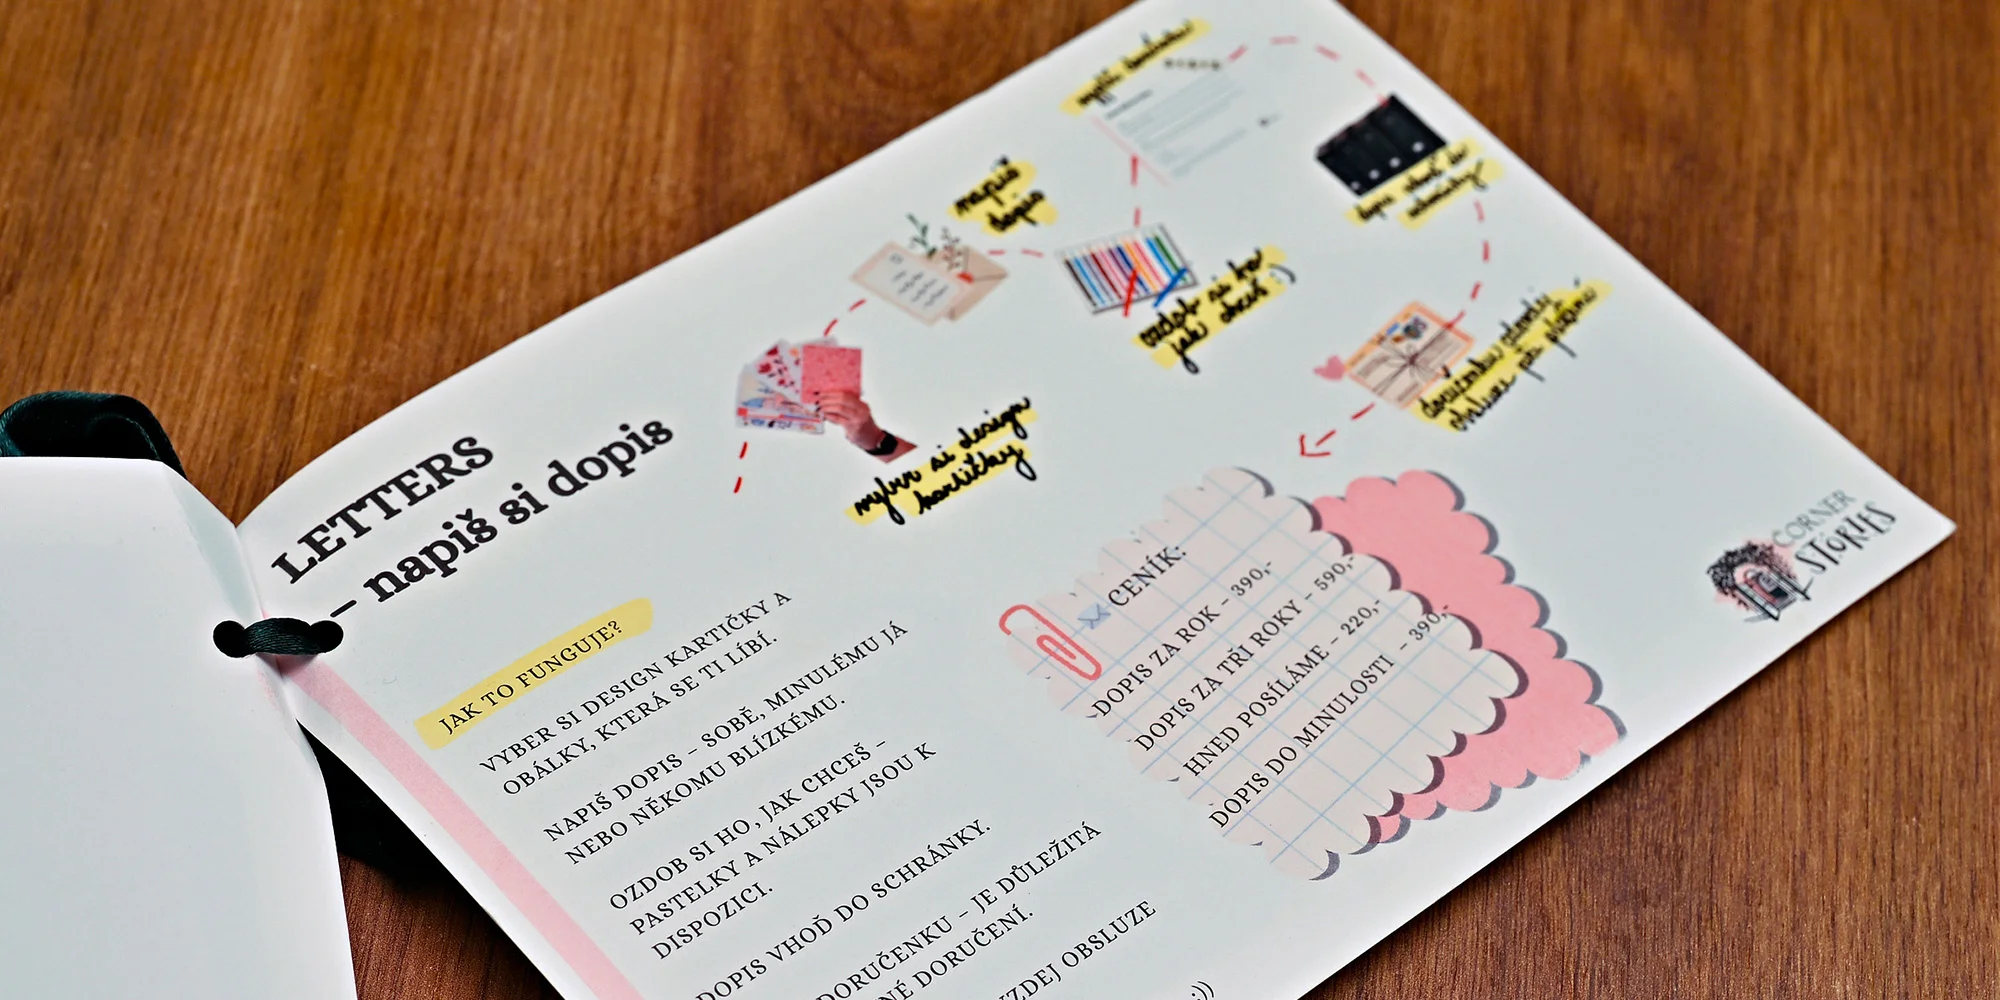 LETTERS
– napiš si dopis
JAK TO FUNGUJE?
VYBER SI DESIGN KARTIČKY A
OBÁLKY, KTERÁ SE TI LÍBÍ.
NAPIŠ DOPIS – SOBĚ, MINULÉMU JÁ
NEBO NĚKOMU BLÍZKÉMU.
OZDOB SI HO, JAK CHCEŠ –
PASTELKY A NÁLEPKY JSOU K
DISPOZICI.
DOPIS VHOĎ DO SCHRÁNKY.
DORUČENKU – JE DŮLEŽITÁ
NÉ DORUČENÍ.
OBSLUZE
:))
vyber si design
kartičky
napiš
dopis
ozdob si ho
jak chceš :)
vyplň
dopis vhoď do
schránky
doručenku odevzdej
obsluze při placení
CENÍK:
DOPIS ZA ROK – 390,-
DOPIS ZA TŘI ROKY – 590,-
HNED POSÍLÁME – 220,-
DOPIS DO MINULOSTI – 390,-
CORNER
STORIES